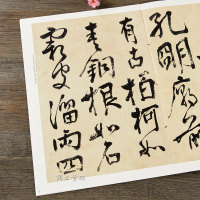 孔明廟前
有古柏柯如
青銅根如石
霜皮溜雨四